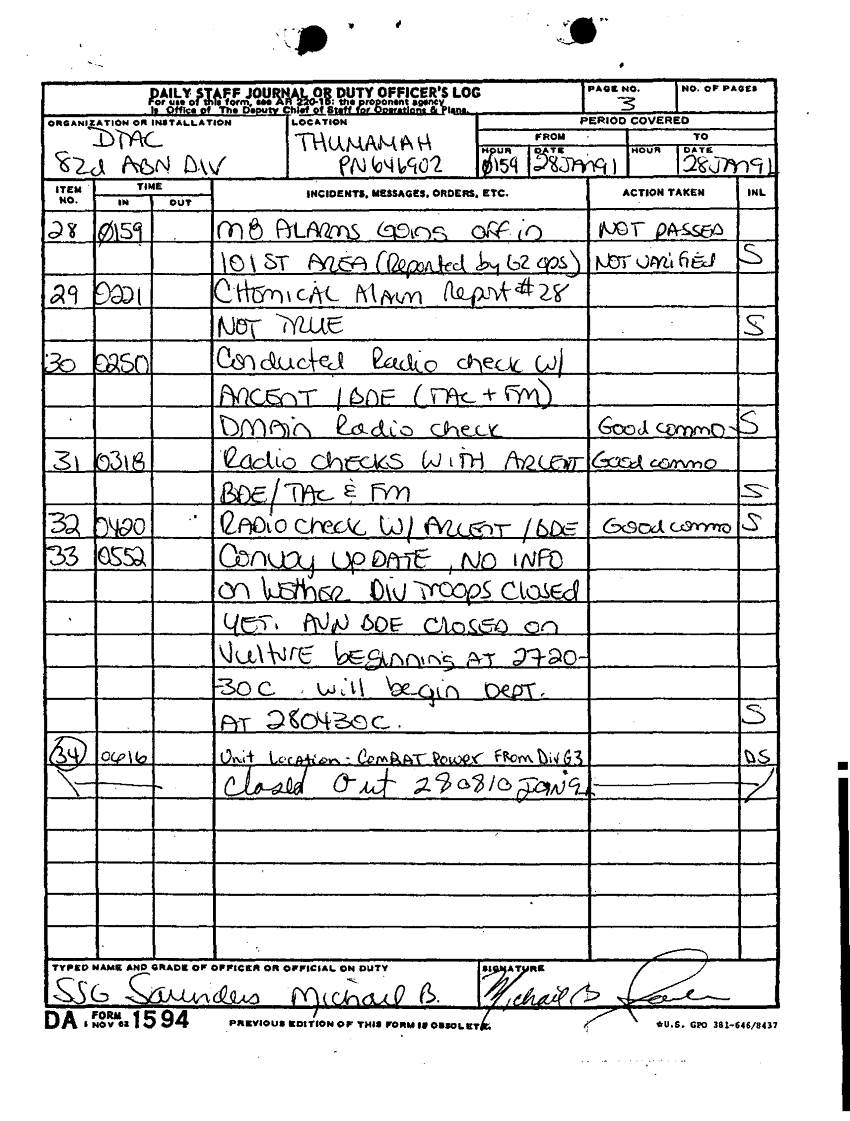 DAILY STAFF JOURNAL OR DUTY OFFICER'S LOG
For use of this form, see AR 220-15; the proponent agency
is Office of The Deputy Chief of Staff for Operations & Plans.
PAGE NO.
3
NO. OF PAGES
ORGANIZATION OR INSTALLATION
DTAC
82d ABN DIV
LOCATION
THUMAMAH
PN646902
PERIOD COVERED
FROM TO
HOUR DATE HOUR DATE
0159 28JAN91 28JAN91
ITEM NO. TIME INCIDENTS, MESSAGES, ORDERS, ETC. ACTION TAKEN INL
IN OUT
28 0159 M8 ALARMS GOING OFF in NOT PASSED
101ST AREA (Reported by G2 ops) NOT VARIFIED S
29 0221 CHEMICAL Alarm Report #28
NOT TRUE S
30 0250 Conducted Radio check W/
ARCENT / BDE (TAC + FM)
DMAIN Radio check Good commo S
31 0318 Radio CHECKS WITH ARCENT Good commo
BDE/TAC & FM S
32 0420 RADIO check W/ ARCENT / BDE Good commo S
33 0552 Convoy UPDATE, NO INFO
on WETHER DIV TROOPS CLOSED
YET. AVN BDE CLOSED on
VULTURE beginning AT 2720-
30C. will begin DEPT.
AT 280430C. S
34 0616 Unit Location - COMBAT Power From Div G3 DS
Closed Out 280810Jan91
TYPED NAME AND GRADE OF OFFICER OR OFFICIAL ON DUTY
SSG Saunders Michael B.
SIGNATURE
Michael B
DA FORM 1594
1 NOV 62
PREVIOUS EDITION OF THIS FORM IS OBSOLETE.
☆U.S. GPO 381-646/8437